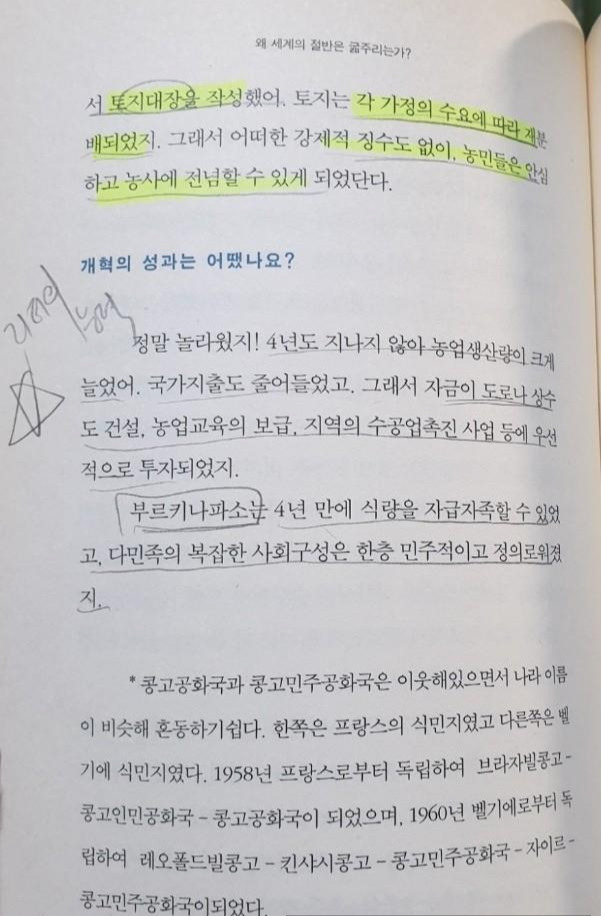 왜 세계의 절반은 굶주리는가?
서 토지대장을 작성했어. 토지는 각 가정의 수요에 따라 재분
배되었지. 그래서 어떠한 강제적 징수도 없이, 농민들은 안심
하고 농사에 전념할 수 있게 되었단다.
개혁의 성과는 어땠나요?
정말 놀라웠지! 4년도 지나지 않아 농업생산량이 크게
늘었어. 국가지출도 줄어들었고. 그래서 자금이 도로나 상수
도 건설, 농업교육의 보급, 지역의 수공업촉진 사업 등에 우선
적으로 투자되었지.
부르키나파소는 4년 만에 식량을 자급자족할 수 있었
고, 다민족의 복잡한 사회구성은 한층 민주적이고 정의로워졌
지.
* 콩고공화국과 콩고민주공화국은 이웃해있으면서 나라 이름
이 비슷해 혼동하기쉽다. 한쪽은 프랑스의 식민지였고 다른쪽은 벨
기에 식민지였다. 1958년 프랑스로부터 독립하여 브라자빌콩고-
콩고인민공화국 - 콩고공화국이 되었으며, 1960년 벨기에로부터 독
립하여 레오폴드빌콩고 - 킨샤시콩고 - 콩고민주공화국 - 자이르-
콩고민주공화국이되었다.